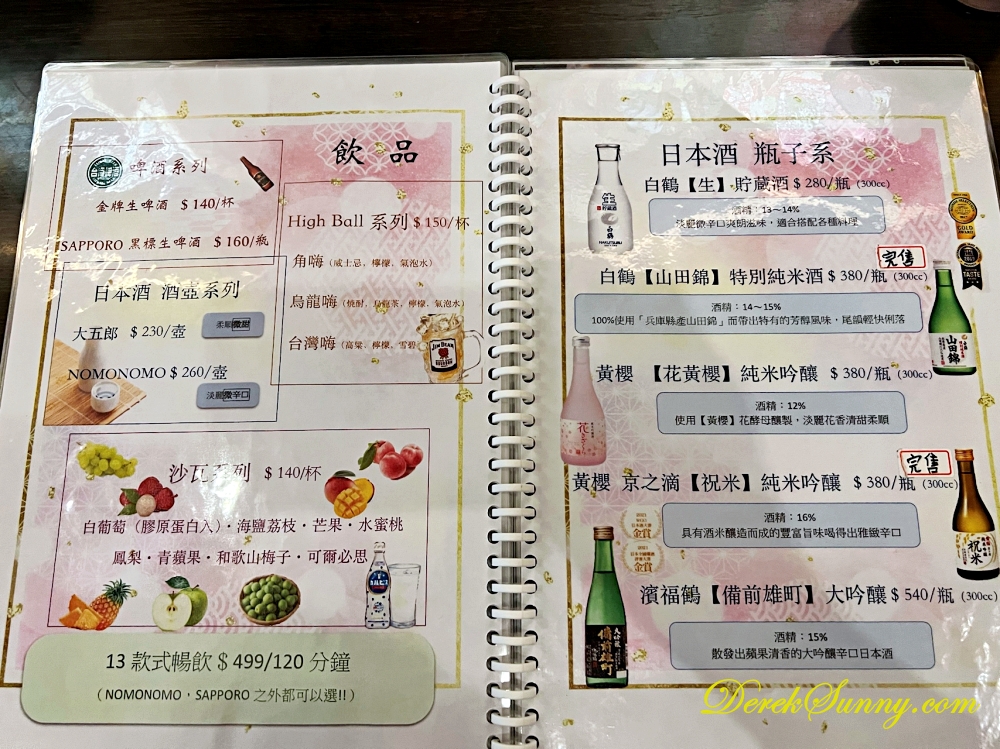 飲 品
啤酒系列
金牌生啤酒 $140/杯
SAPPORO 黑標生啤酒 $160/瓶
日本酒 酒壺系列
大五郎 $230/壺
柔順微甜
NOMONOMO $260/壺
淡麗微辛口
High Ball 系列 $150/杯
角嗨（威士忌、檸檬、氣泡水）
烏龍嗨（燒酎、烏龍茶、檸檬、氣泡水）
台灣嗨（高粱、檸檬、雪碧
JIM BEAM
沙瓦系列 $140/杯
白葡萄（膠原蛋白入）・海鹽荔枝・芒果・水蜜桃
鳳梨・青蘋果・和歌山梅子・可爾必思
13 款式暢飲 $499/120 分鐘
（NOMONOMO，SAPPORO 之外都可以選!!）
日本酒 瓶子系
白鶴【生】貯蔵酒 $280/瓶 (300cc)
酒精：13~14%
淡麗微辛口爽朗滋味，適合搭配各種料理
完售
白鶴【山田錦】特別純米酒 $380/瓶 (300cc)
酒精：14~15%
100%使用「兵庫縣產山田錦」而帶出特有的芳醇風味，尾韻輕快俐落
山田錦
黃櫻 【花黃櫻】純米吟釀 $380/瓶 (300cc)
酒精：12%
使用【黃櫻】花酵母釀製，淡麗花香清甜柔順
完售
黃櫻 京之滴【祝米】純米吟釀 $380/瓶 (300cc)
酒精：16%
具有酒米釀造而成的豐富旨味喝得出雅緻辛口
祝米
金賞
金賞
濱福鶴【備前雄町】大吟釀 $540/瓶 (300cc)
酒精：15%
散發出蘋果清香的大吟釀辛口日本酒
大吟釀
備前雄町
DerekSunny.com